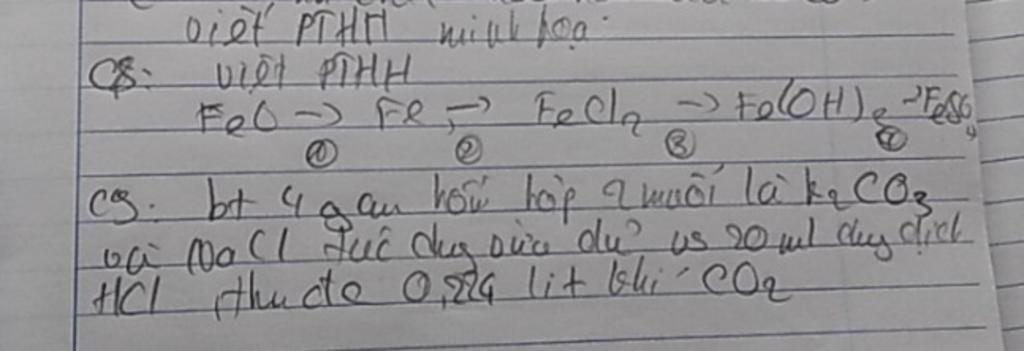 viết PTHH minh họa.
C8: viết PTHH
FeO → Fe → FeCl2 → Fe(OH)2 → FeSO4
① ② ③ ④
C9. bt 4 g hỗn hợp 2 muối là k2CO3
và NaCl tác dụng vừa đủ vs 20 ml dung dịch
HCl thu đc 0,224 lit khí CO2